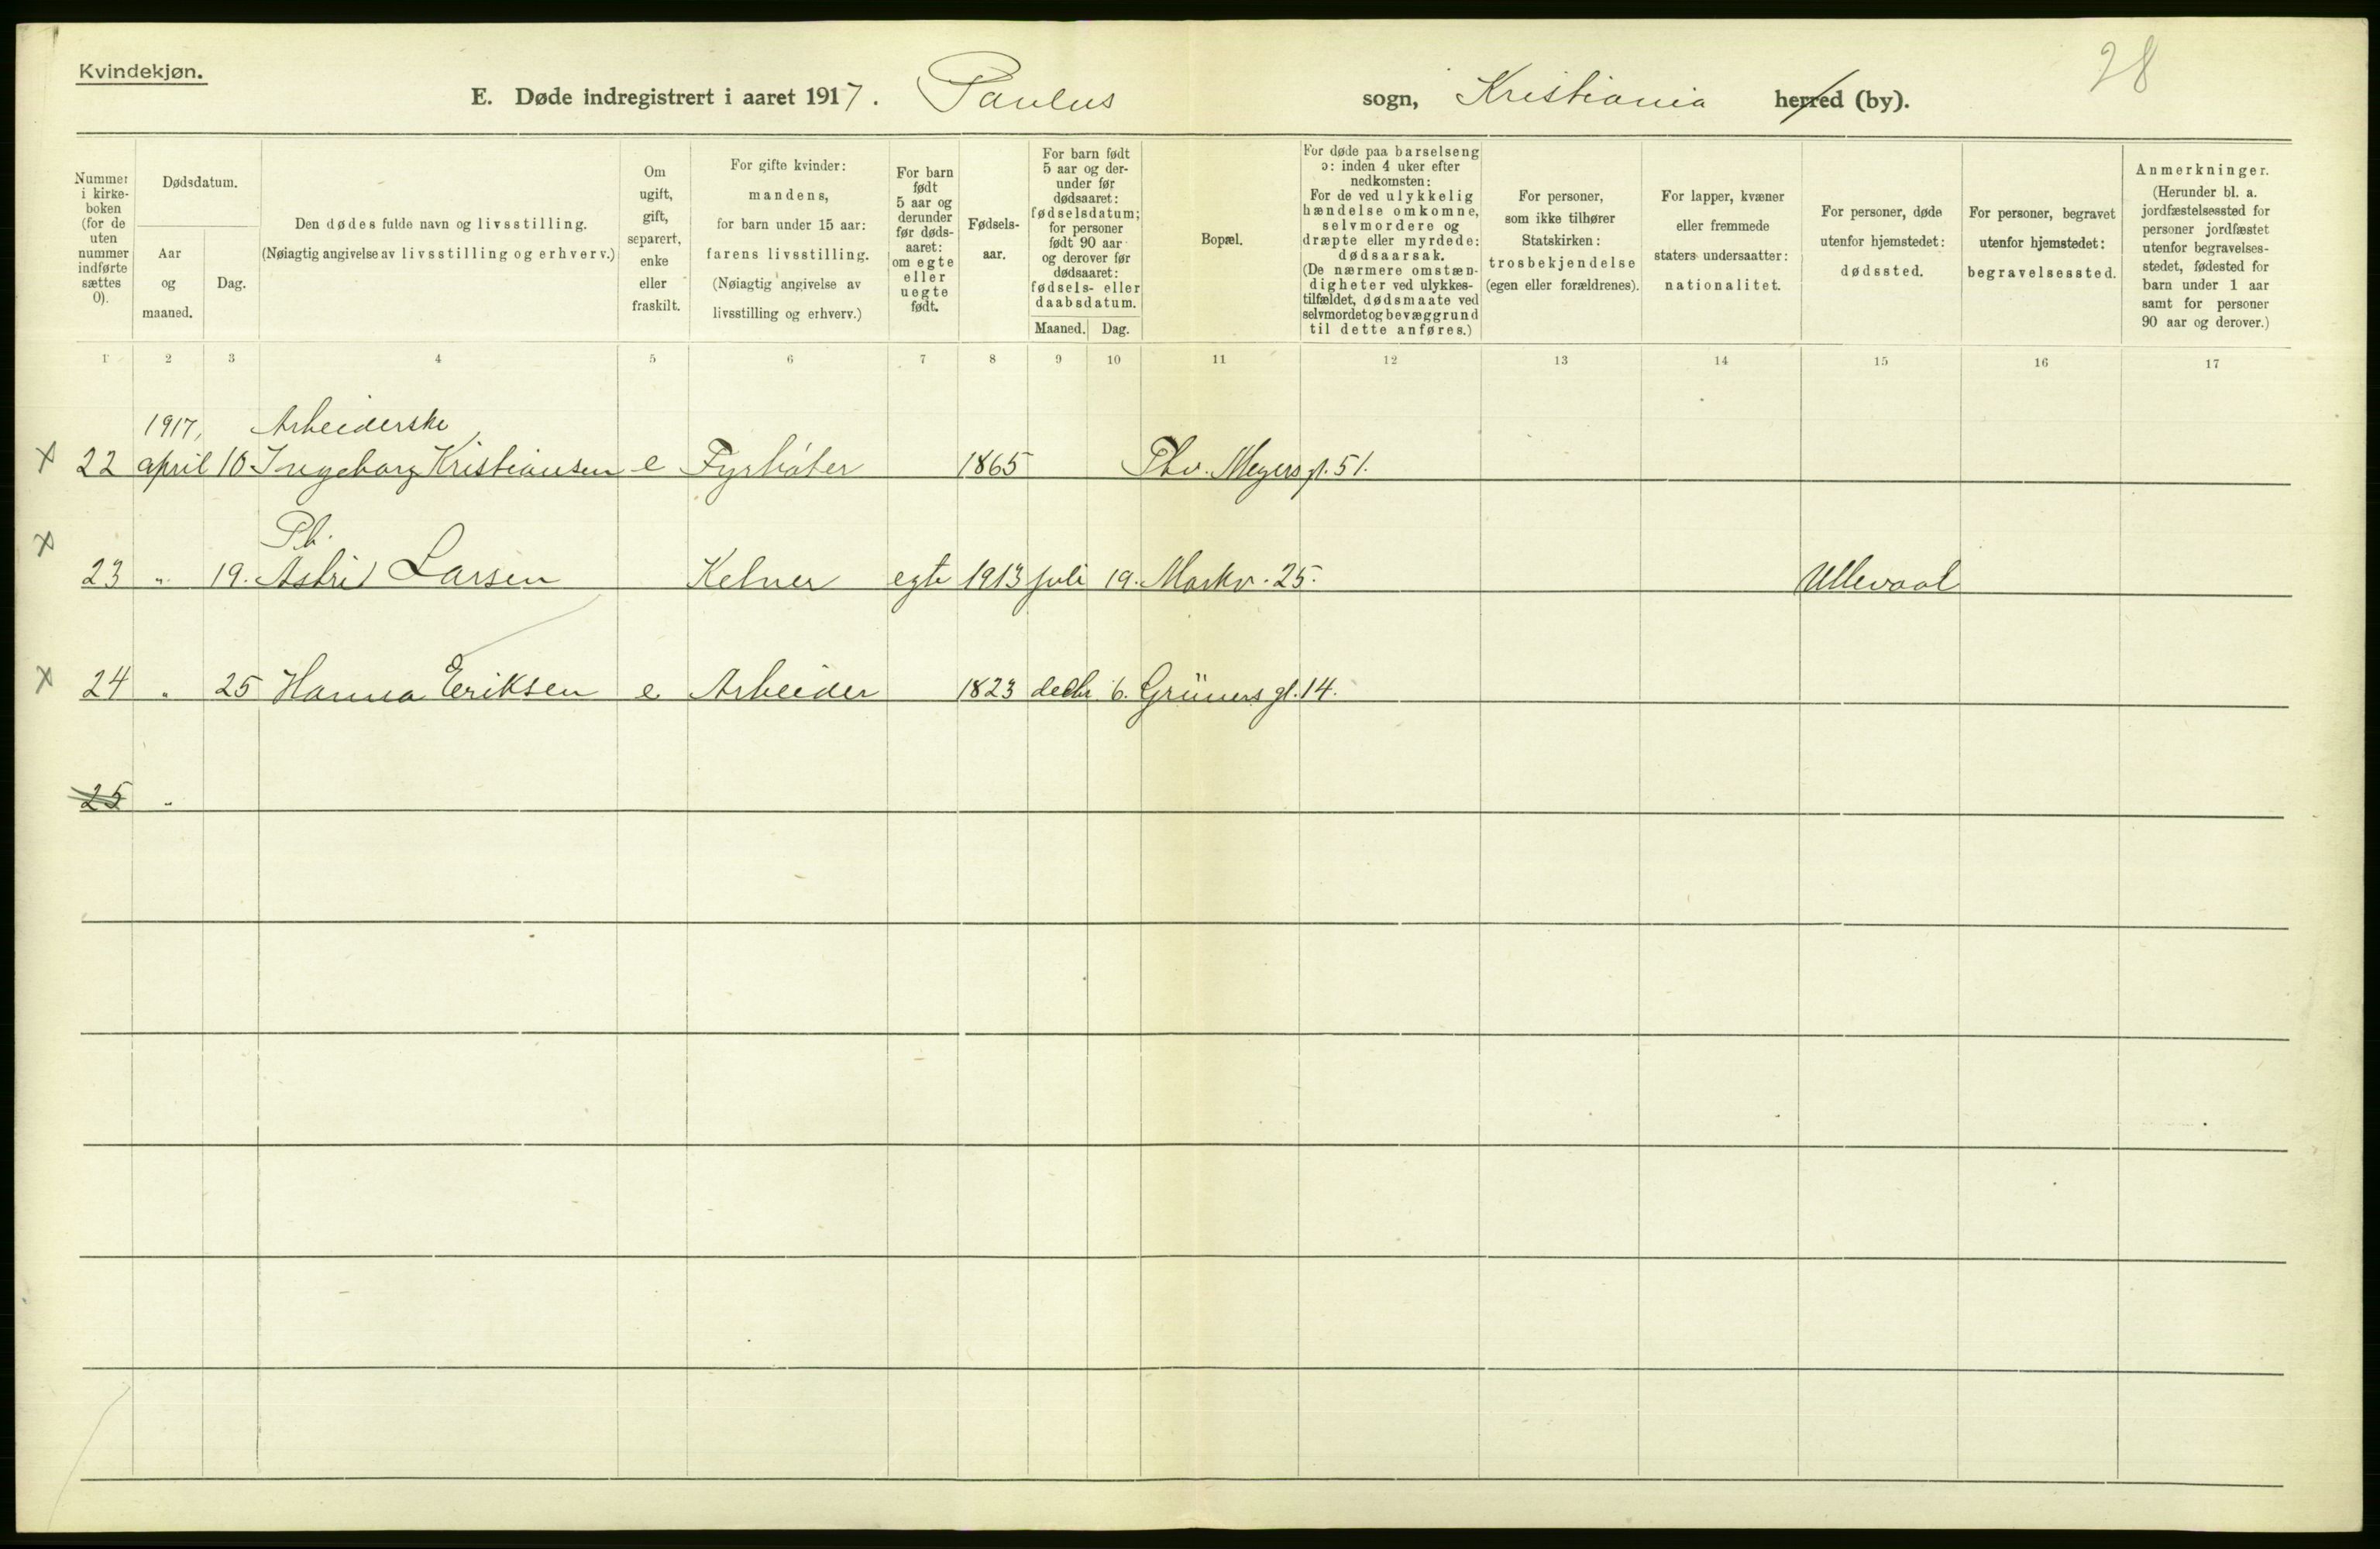 Kvindekjøn.
28
E. Døde indregistrert i aaret 1917. Paulus sogn, Kristiania herred (by).
Nummer i kirkeboken (for de uten nummer indførte sættes 0).
Dødsdatum.
Aar og maaned.
Dag.
Den dødes fulde navn og livsstilling.
(Nøiagtig angivelse av livsstilling og erhverv.)
Om ugift, gift, separert, enke eller fraskilt.
For gifte kvinder: mandens, for barn under 15 aar: farens livsstilling. (Nøiagtig angivelse av livsstilling og erhverv.)
For barn født 5 aar og derunder før dødsaaret: om egte eller uegte født.
Fødselsaar.
For barn født 5 aar og derunder før dødsaaret: fødselsdatum; for personer født 90 aar og derover før dødsaaret: fødsels- eller daabsdatum.
Maaned.
Dag.
Bopæl.
For døde paa barselseng ɔ: inden 4 uker efter nedkomsten: For de ved ulykkelig hændelse omkomne, selvmordere og dræpte eller myrdede: dødsaarsak. (De nærmere omstændigheter ved ulykkestilfældet, dødsmaate ved selvmordet og bevæggrund til dette anføres.)
For personer, som ikke tilhører Statskirken: trosbekjendelse (egen eller forældrenes).
For lapper, kvæner eller fremmede staters undersaatter: nationalitet.
For personer, døde utenfor hjemstedet: dødssted.
For personer, begravet utenfor hjemstedet: begravelsessted.
Anmerkninger. (Herunder bl. a. jordfæstelsessted for personer jordfæstet utenfor begravelsesstedet, fødested for barn under 1 aar samt for personer 90 aar og derover.)
1 2 3 4 5 6 7 8 9 10 11 12 13 14 15 16 17
1917, Arbeiderske
x 22 april 10 Ingeborg Kristiansen e Fyrbøter 1865 Thv. Meyers gt. 51.
x Pb.
23 " 19. Astrid Larsen Kelner egte 1913 juli 19. Markv. 25. Ullevaal
x 24 " 25 Hanna Eriksen e Arbeider 1823 decbr. 6. Grüners gt. 14.
25 "